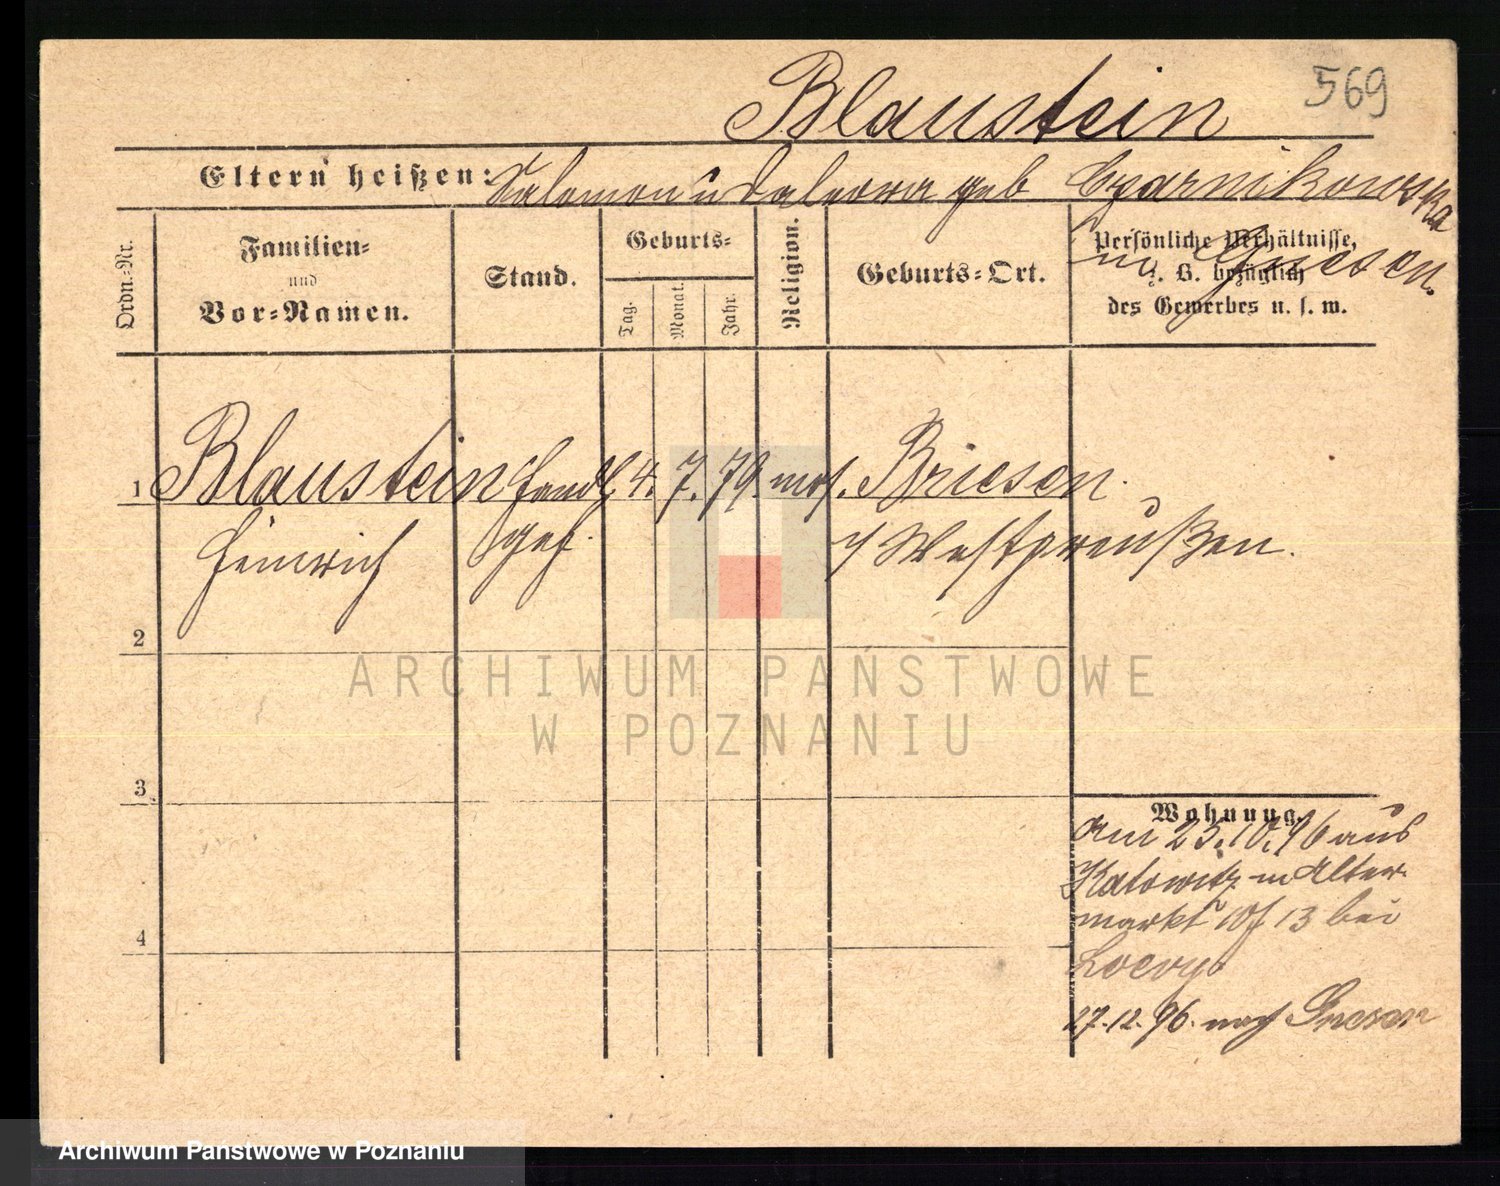 569
Blaustein
Eltern heißen: Salomon u geb Czarnikowska
in Gnesen.
Ordn.=Nr.
Familien= und Vor=Namen.
Stand.
Geburts=
Tag.
Monat.
Jahr.
Religion.
Geburts=Ort.
Persönliche Verhältnisse,
z. B. bezüglich
des Gewerbes u. s. w.
1 Blaustein Handl. 4. 7. 79. mos. Briesen
Heinrich geh. Westpreußen.
2
3
4
Wohnung.
am 25.10.96 aus
Katowitz Alter
markt 13 bei
Loevy
27.12.96. nach Gnesen
ARCHIWUM PAŃSTWOWE
W POZNANIU
Archiwum Państwowe w Poznaniu